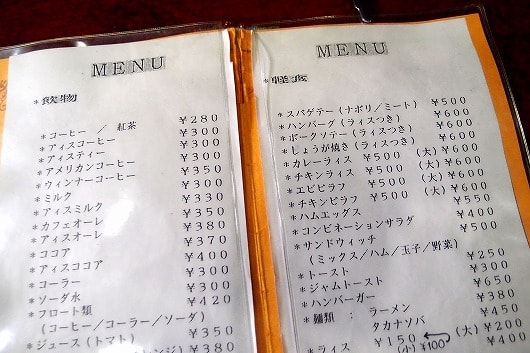 MENU
*飲物
*コーヒー / 紅茶 ¥280
*アイスコーヒー ¥300
*アイスティー ¥300
*アメリカンコーヒー ¥300
*ウィンナーコーヒー ¥350
*ミルク ¥300
*アイスミルク ¥330
*カフェオーレ ¥350
*アイスオーレ ¥380
*ココア ¥370
*アイスココア ¥400
*コーラー ¥300
*ソーダ水 ¥300
*フロート類 ¥420
(コーヒー/コーラー/ソーダ)
*ジュース(トマト) ¥350
ンジ) ¥380
MENU
*軽食
*スパゲテー(ナポリ/ミート) ¥500
*ハンバーグ(ライスつき) ¥600
*ポークソテー(ライスつき) ¥600
*しょうが焼き(ライスつき) ¥600
*カレーライス ¥500 (大)¥600
*チキンライス ¥500 (大)¥600
*エビピラフ ¥500 (大)¥600
*チキンピラフ ¥500 (大)¥600
*ハムエッグス ¥550
*コンビネーションサラダ ¥400
*サンドウィッチ ¥500
(ミックス/ハム/玉子/野菜)
*トースト ¥250
*ジャムトースト ¥300
*ハンバーガー ¥650
*麺類 : ラーメン ¥380
タカナソバ ¥450
*ライス ¥150 (大)¥200
(小)¥100